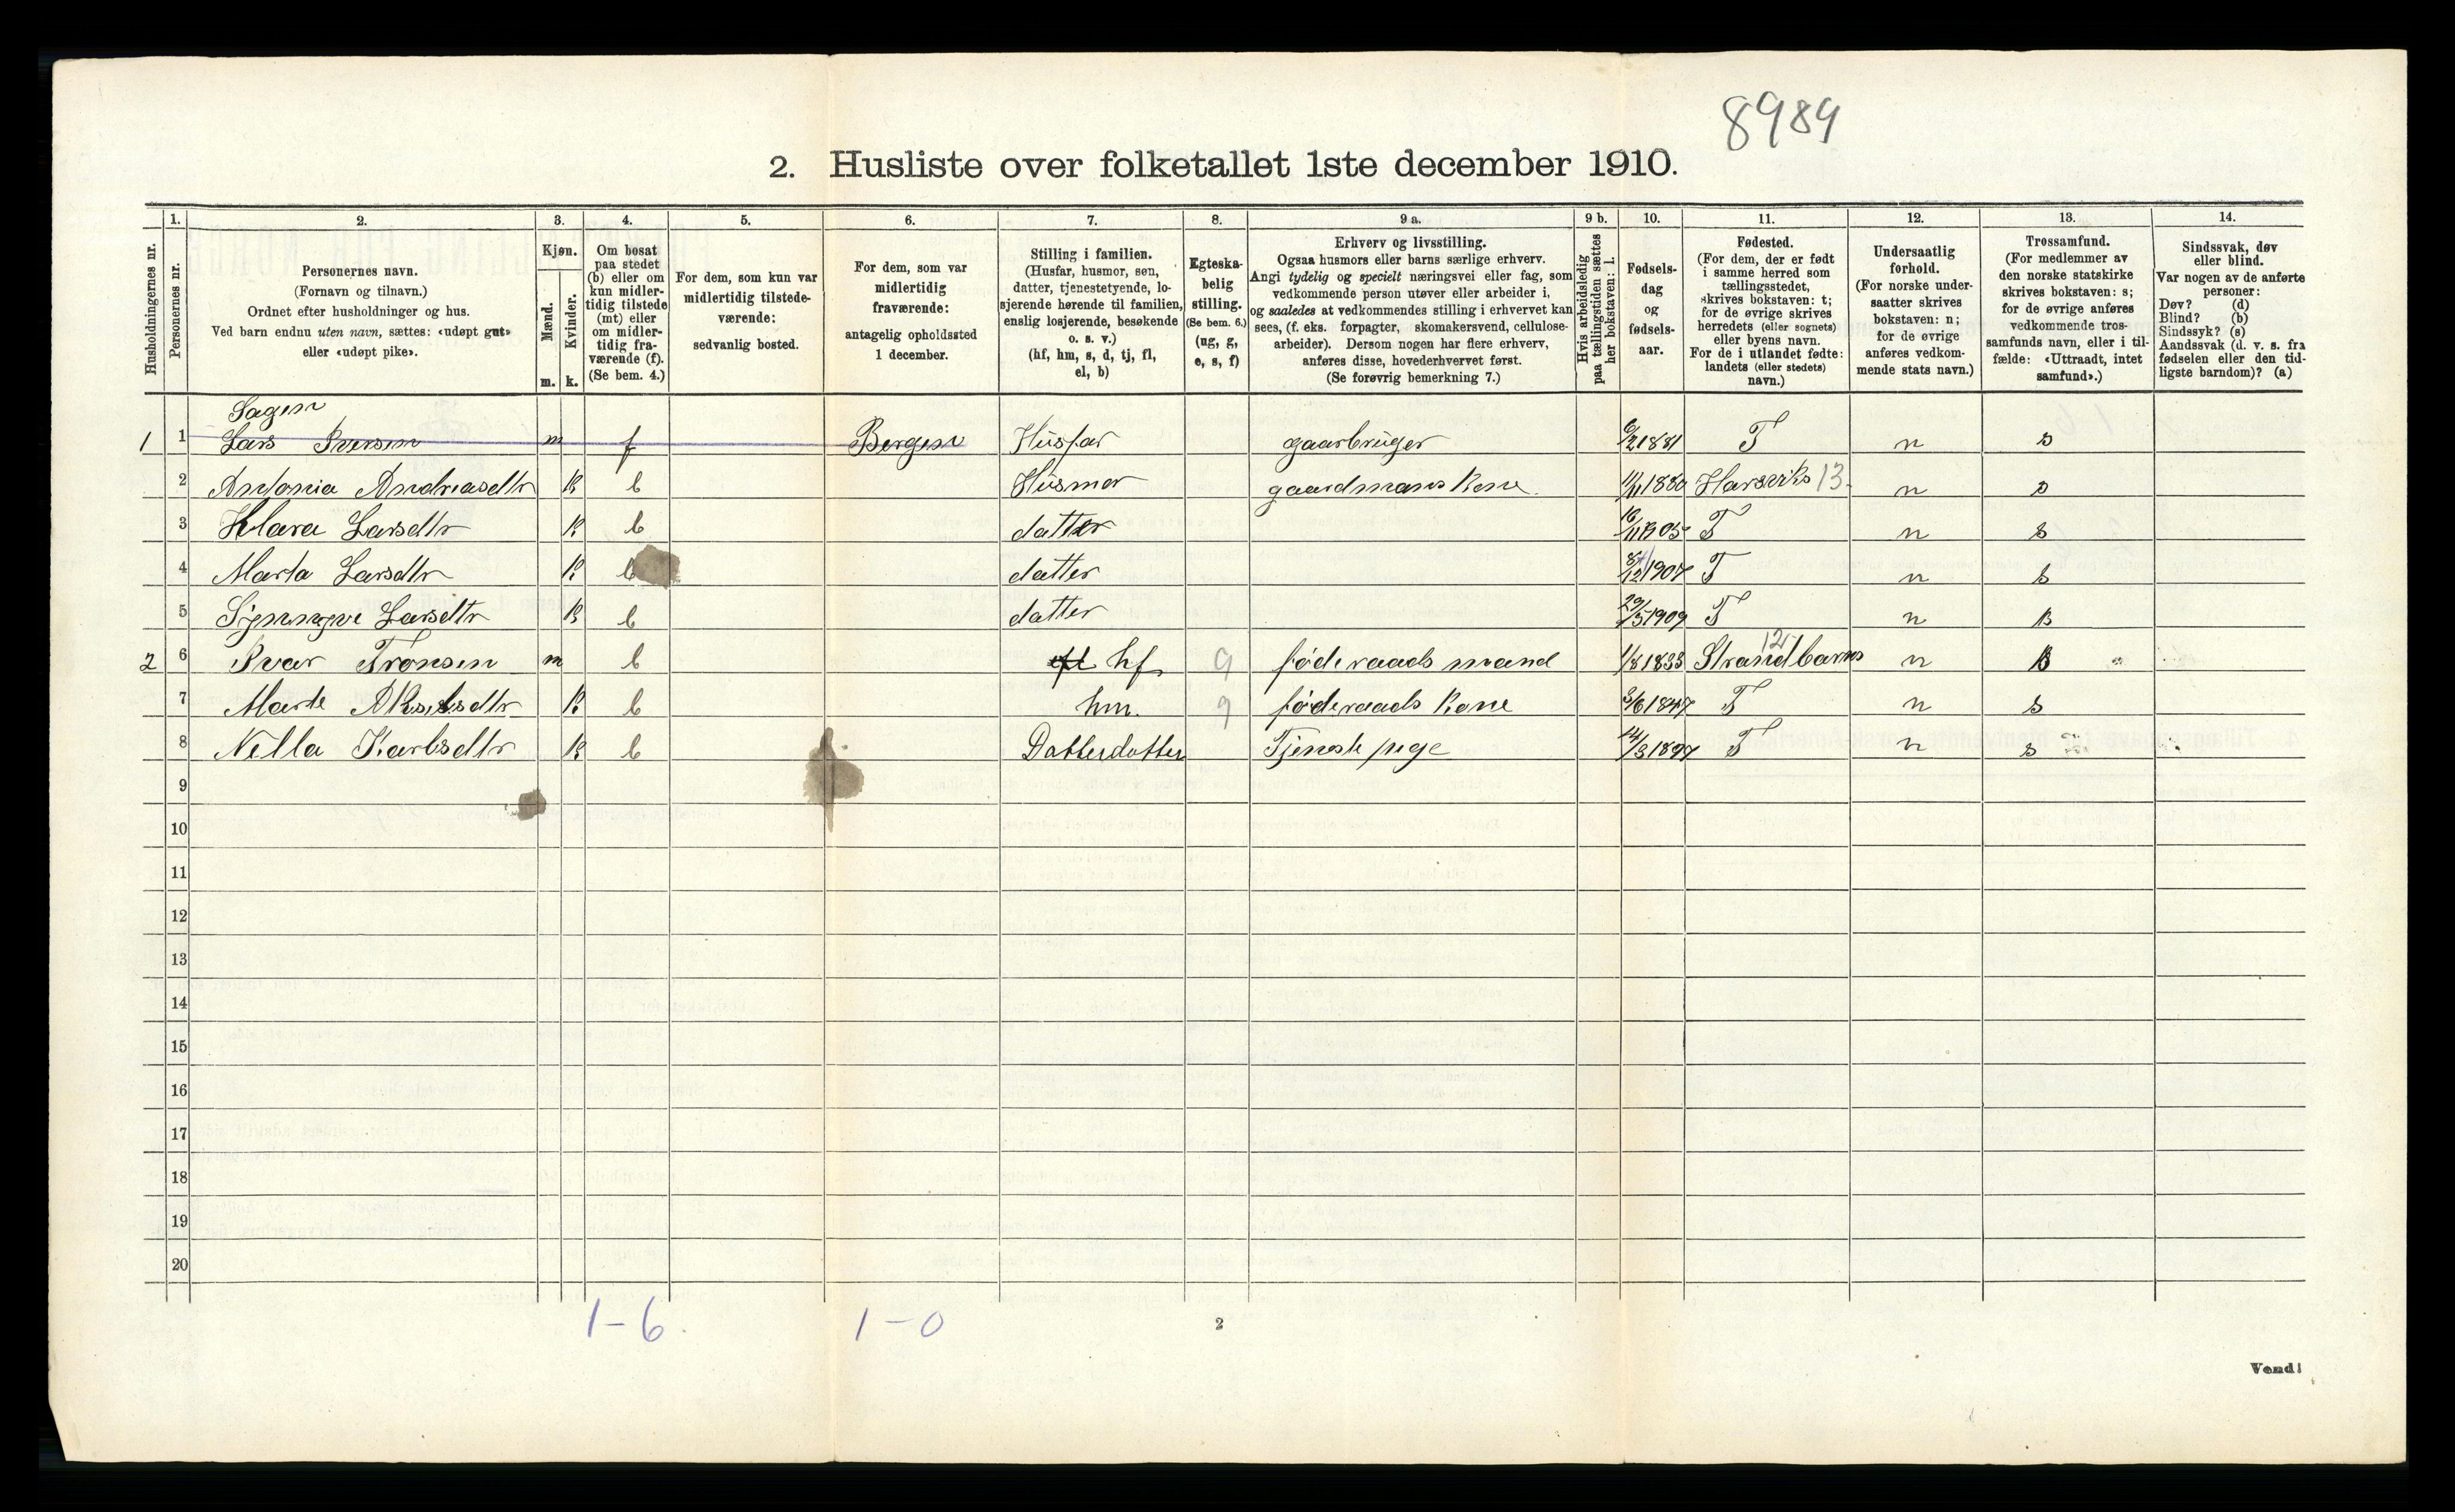 8989
2. Husliste over folketallet 1ste december 1910.
Husholdningernes nr.
1. Personernes nr.
2. Personernes navn.
(Fornavn og tilnavn.)
Ordnet efter husholdninger og hus.
Ved barn endnu uten navn, sættes: «udøpt gut»
eller «udøpt pike».
3. Kjøn.
Mænd. m.
Kvinder. k.
4. Om bosat
paa stedet
(b) eller om
kun midler-
tidig tilstede
(mt) eller
om midler-
tidig fra-
værende (f).
(Se bem. 4.)
5. For dem, som kun var
midlertidig tilstede-
værende:
sedvanlig bosted.
6. For dem, som var
midlertidig
fraværende:
antagelig opholdssted
1 december.
7. Stilling i familien.
(Husfar, husmor, søn,
datter, tjenestetyende, lo-
sjerende hørende til familien,
enslig losjerende, besøkende
o. s. v.)
(hf, hm, s, d, tj, fl,
el, b)
8. Egteska-
belig
stilling.
(Se bem. 6.)
(ug, g,
e, s, f)
9 a. Erhverv og livsstilling.
Ogsaa husmors eller barns særlige erhverv.
Angi tydelig og specielt næringsvei eller fag, som
vedkommende person utøver eller arbeider i,
og saaledes at vedkommendes stilling i erhvervet kan
sees, (f. eks. forpagter, skomakersvend, cellulose-
arbeider). Dersom nogen har flere erhverv,
anføres disse, hovederhvervet først.
(Se forøvrig bemerkning 7.)
9 b. Hvis arbeidsledig
paa tællingstiden sættes
her bokstaven: l.
10. Fødsels-
dag
og
fødsels-
aar.
11. Fødested.
(For dem, der er født
i samme herred som
tællingsstedet,
skrives bokstaven: t;
for de øvrige skrives
herredets (eller sognets)
eller byens navn.
For de i utlandet fødte:
landets (eller stedets)
navn.)
12. Undersaatlig
forhold.
(For norske under-
saatter skrives
bokstaven: n;
for de øvrige
anføres vedkom-
mende stats navn.)
13. Trossamfund.
(For medlemmer av
den norske statskirke
skrives bokstaven: s;
for de øvrige anføres
vedkommende tros-
samfunds navn, eller i til-
fælde: «Uttraadt, intet
samfund».)
14. Sindssvak, døv
eller blind.
Var nogen av de anførte
personer:
Døv? (d)
Blind? (b)
Sindssyk? (s)
Aandssvak (d. v. s. fra
fødselen eller den tid-
ligste barndom)? (a)
Sagen
1 1 Lars Iversen m f Bergen Husfar gaarbruger 6/2 1881 T n s
2 Antonia Andreasdtr k b Husmor gaardmans kone. 11/11 1880 Harsviks 13. n s
3 Klara Larsdtr k b datter 16/11 1905 T n s
4 Marta Larsdtr k b datter 1907 T n s
5 Synnøve Larsdtr k b datter 29/5 1909 T n s
2 6 Ivar Tronsen m b hf g føderaads mand 1/8 1833 Strandbarns 12 n s
7 Marte k b hm. g føderaads kone 3/6 1847 T n s
8 Nella k b Datterdatter Tjeneste pige 14/3 1897 T n s
9
10
11
12
13
14
15
16
17
18
19
20
1-6. 1-0
2
Vend!